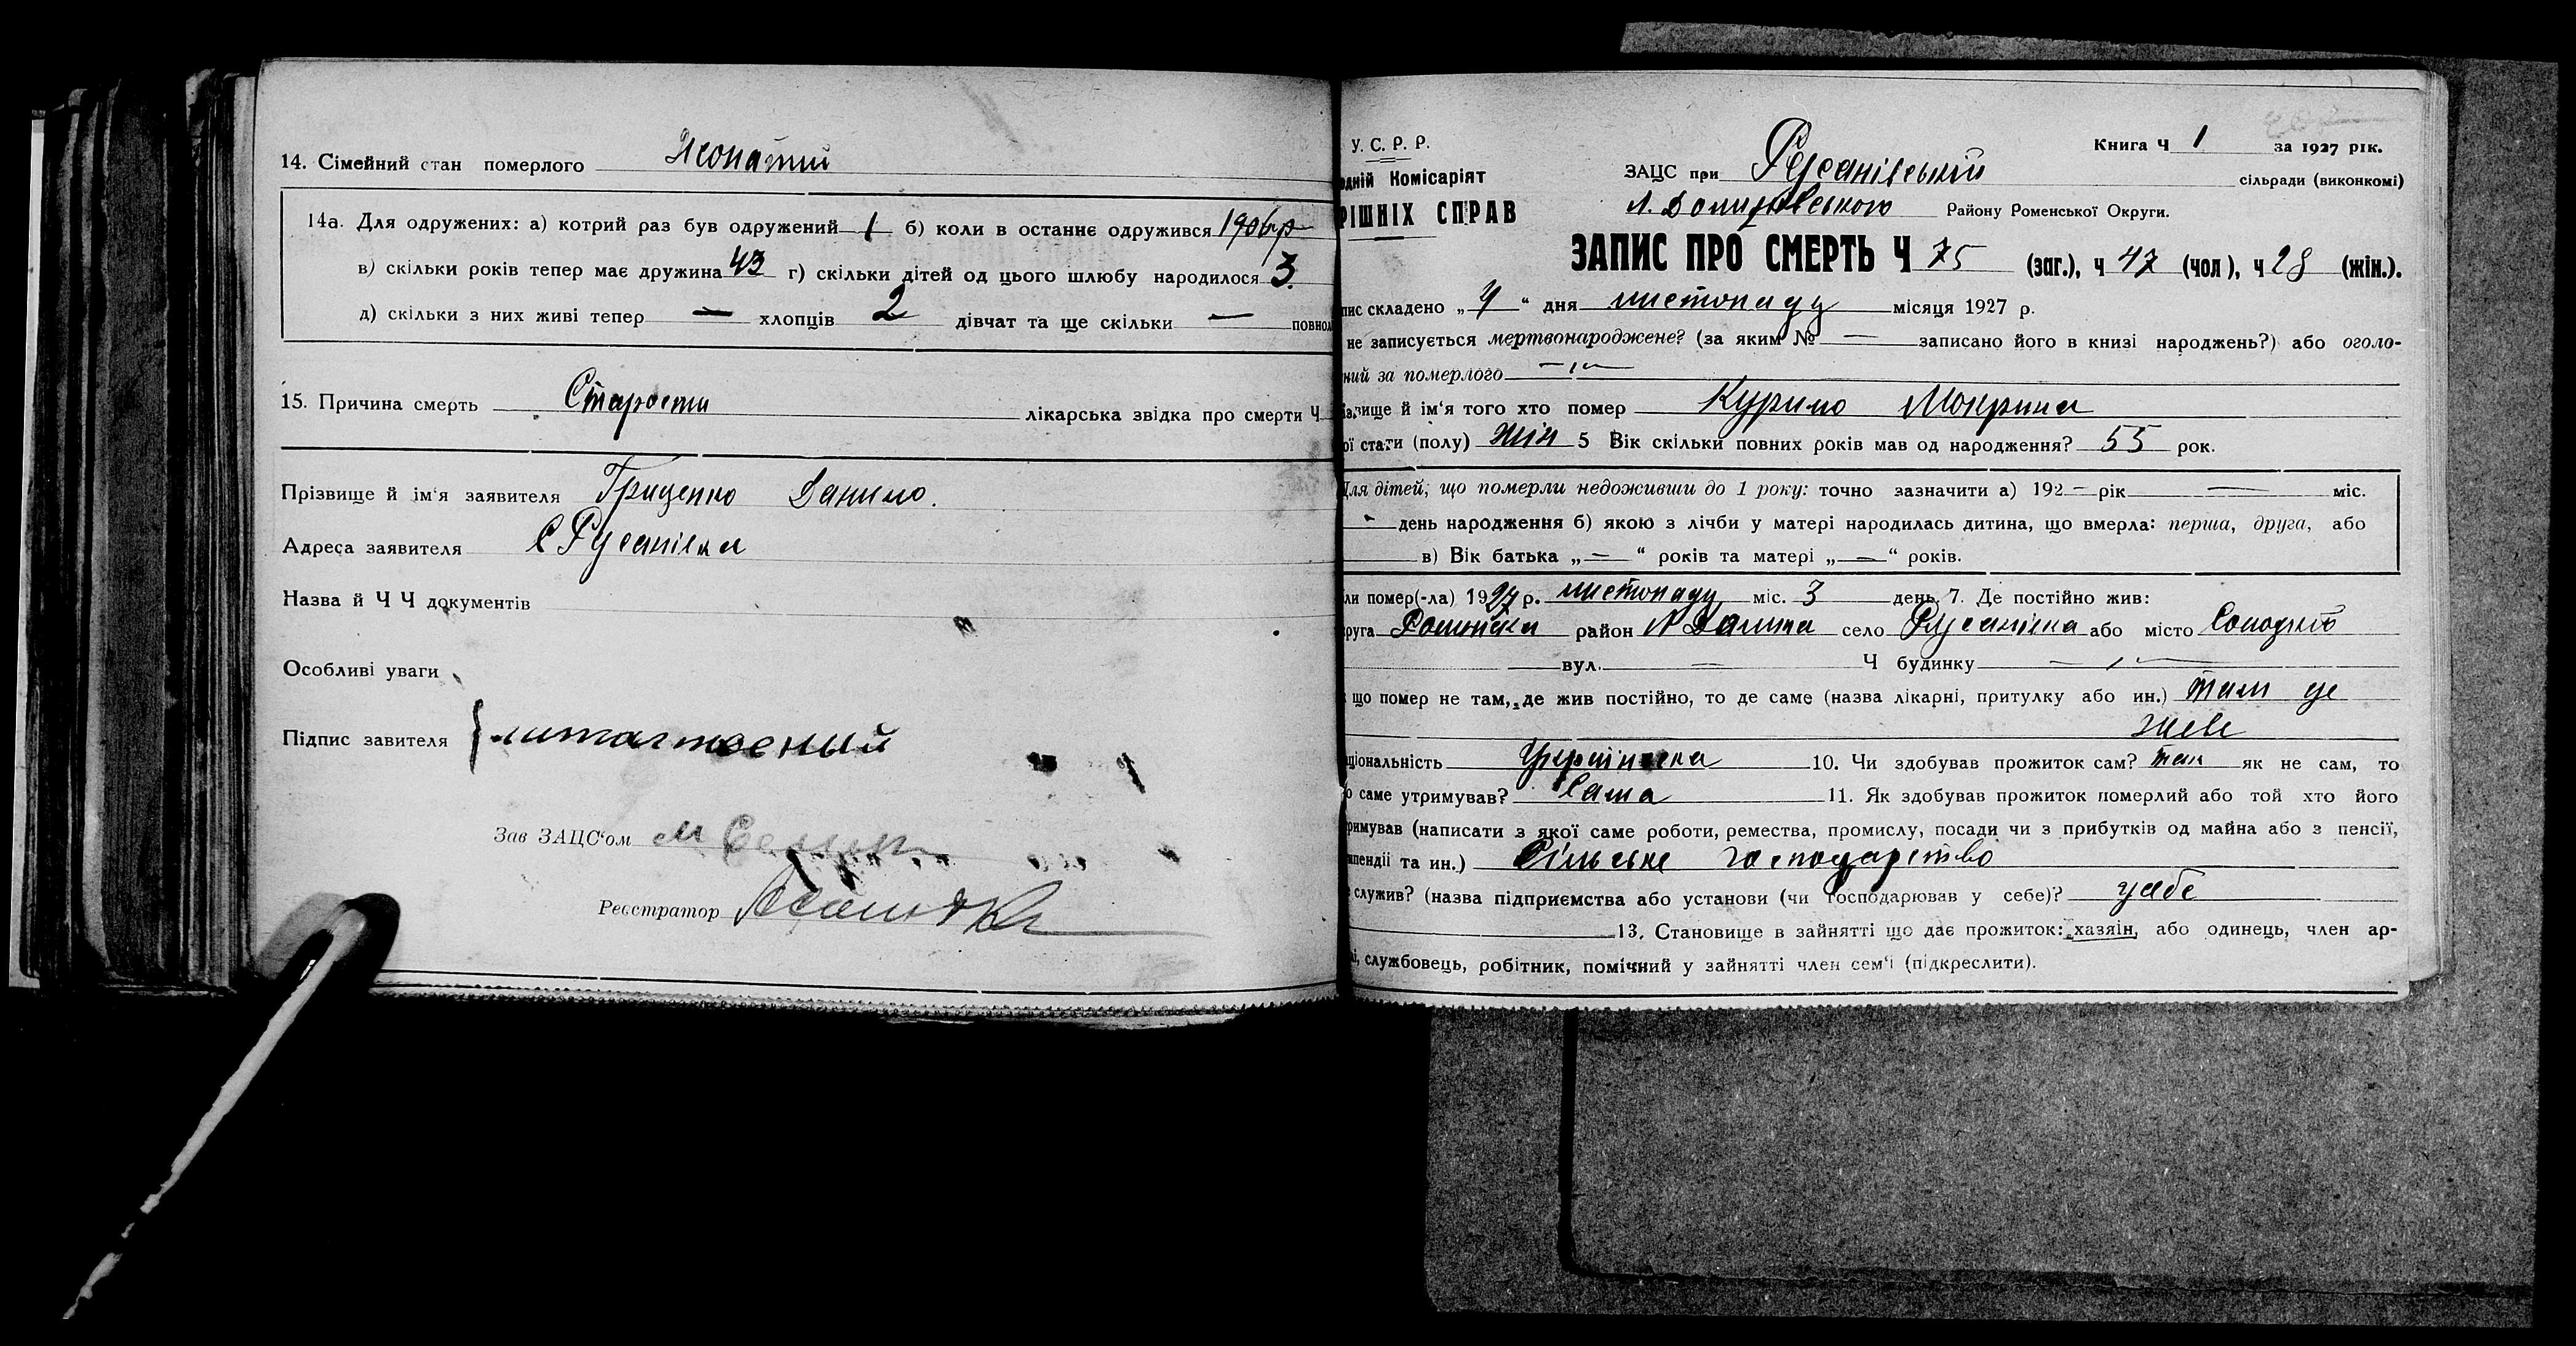 14. Сімейний стан померлого Жонатий
14а. Для одружених: а) котрий раз був одружений 1 б) коли в останнє одружився 1906 р
в) скільки років тепер має дружина 43 г) скільки дітей од цього шлюбу народилося 3.
д) скільки з них живі тепер — хлопців 2 дівчат та ще скільки — повнол
15. Причина смерть Старости лікарська звідка про смерти Ч
Прізвище й ім'я заявителя Гриценко Данило.
Адреса заявителя С Русанівка
Назва й Ч Ч документів
Особливі уваги
Підпис завителя
Зав ЗАЦС'ом М
Реєстратор
У. С. Р. Р.
одній Комісаріят
РІШНІХ СПРАВ
Книга Ч 1 за 1927 рік.
ЗАЦС при Русанівський сільради (виконкомі)
Л. Долинського Району Роменської Округи.
ЗАПИС ПРО СМЕРТЬ Ч 75 (заг.), ч 47 (чол), ч 28 (жін.).
пис складено „4" дня листопаду місяця 1927 р.
не записується мертвонароджене? (за яким № — записано його в книзі народжень?) або оголо-
ний за померлого —"—
ізвище й ім'я того хто помер Курило Мокрина
ої стати (полу) жін 5 Вік скільки повних років мав од народження? 55 рок.
Для дітей, що померли недоживши до 1 року: точно зазначити а) 192 — рік — міс.
— день народження б) якою з лічби у матері народилась дитина, що вмерла: перша, друга, або
в) Вік батька „—" років та матері „—" років.
ли помер(-ла) 1927 р. листопаду міс. 3 день 7. Де постійно жив:
руга Роменська район Л Долина село Русанівка або місто
вул. — Ч будинку —"—
що помер не там, де жив постійно, то де саме (назва лікарні, притулку або ин.) там де
живе
ціональність Українска 10. Чи здобував прожиток сам? так як не сам, то
о саме утримував? Сама 11. Як здобував прожиток померлий або той хто його
римував (написати з якої саме роботи, ремества, промислу, посади чи з прибутків од майна або з пенсії,
ипендії та ин.) Сільське господарство
служив? (назва підприємства або установи (чи господарював у себе)? усебе
13. Становище в зайнятті що дає прожиток: хазяін, або одинець, член ар-
і, службовець, робітник, помічний у зайнятті член сем'ї (підкреслити).